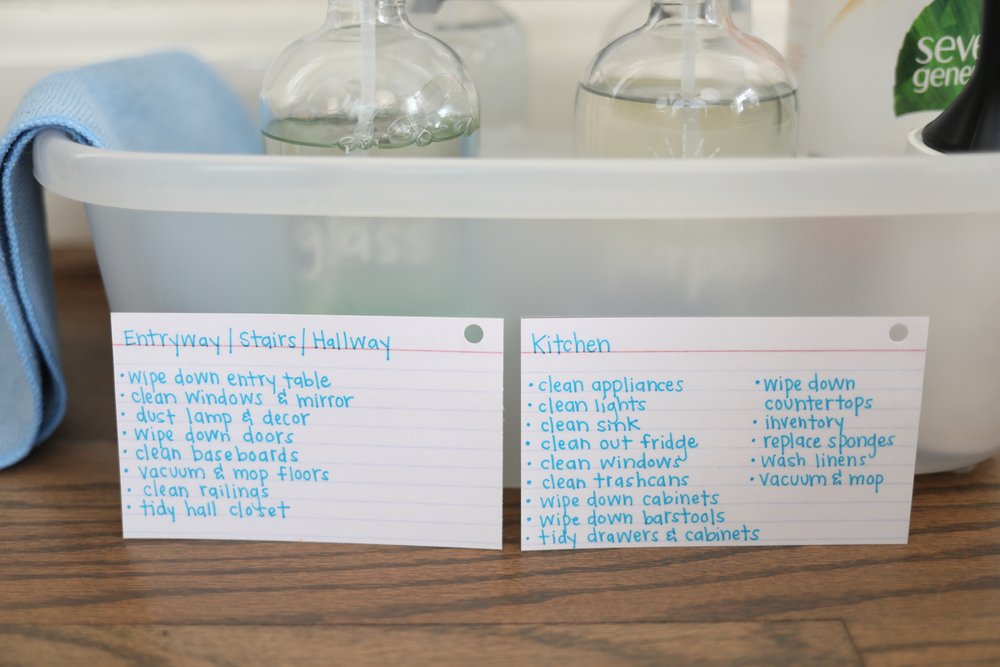 seve
gene
glass
Entryway / Stairs / Hallway
• wipe down entry table
• clean windows & mirror
• dust lamp & decor
• wipe down doors
• clean baseboards
• vacuum & mop floors
• clean railings
• tidy hall closet
Kitchen
• clean appliances
• clean lights
• clean sink
• clean out fridge
• clean windows
• clean trashcans
• wipe down cabinets
• wipe down barstools
• tidy drawers & cabinets
• wipe down
countertops
• inventory
• replace sponges
• wash linens
• vacuum & mop